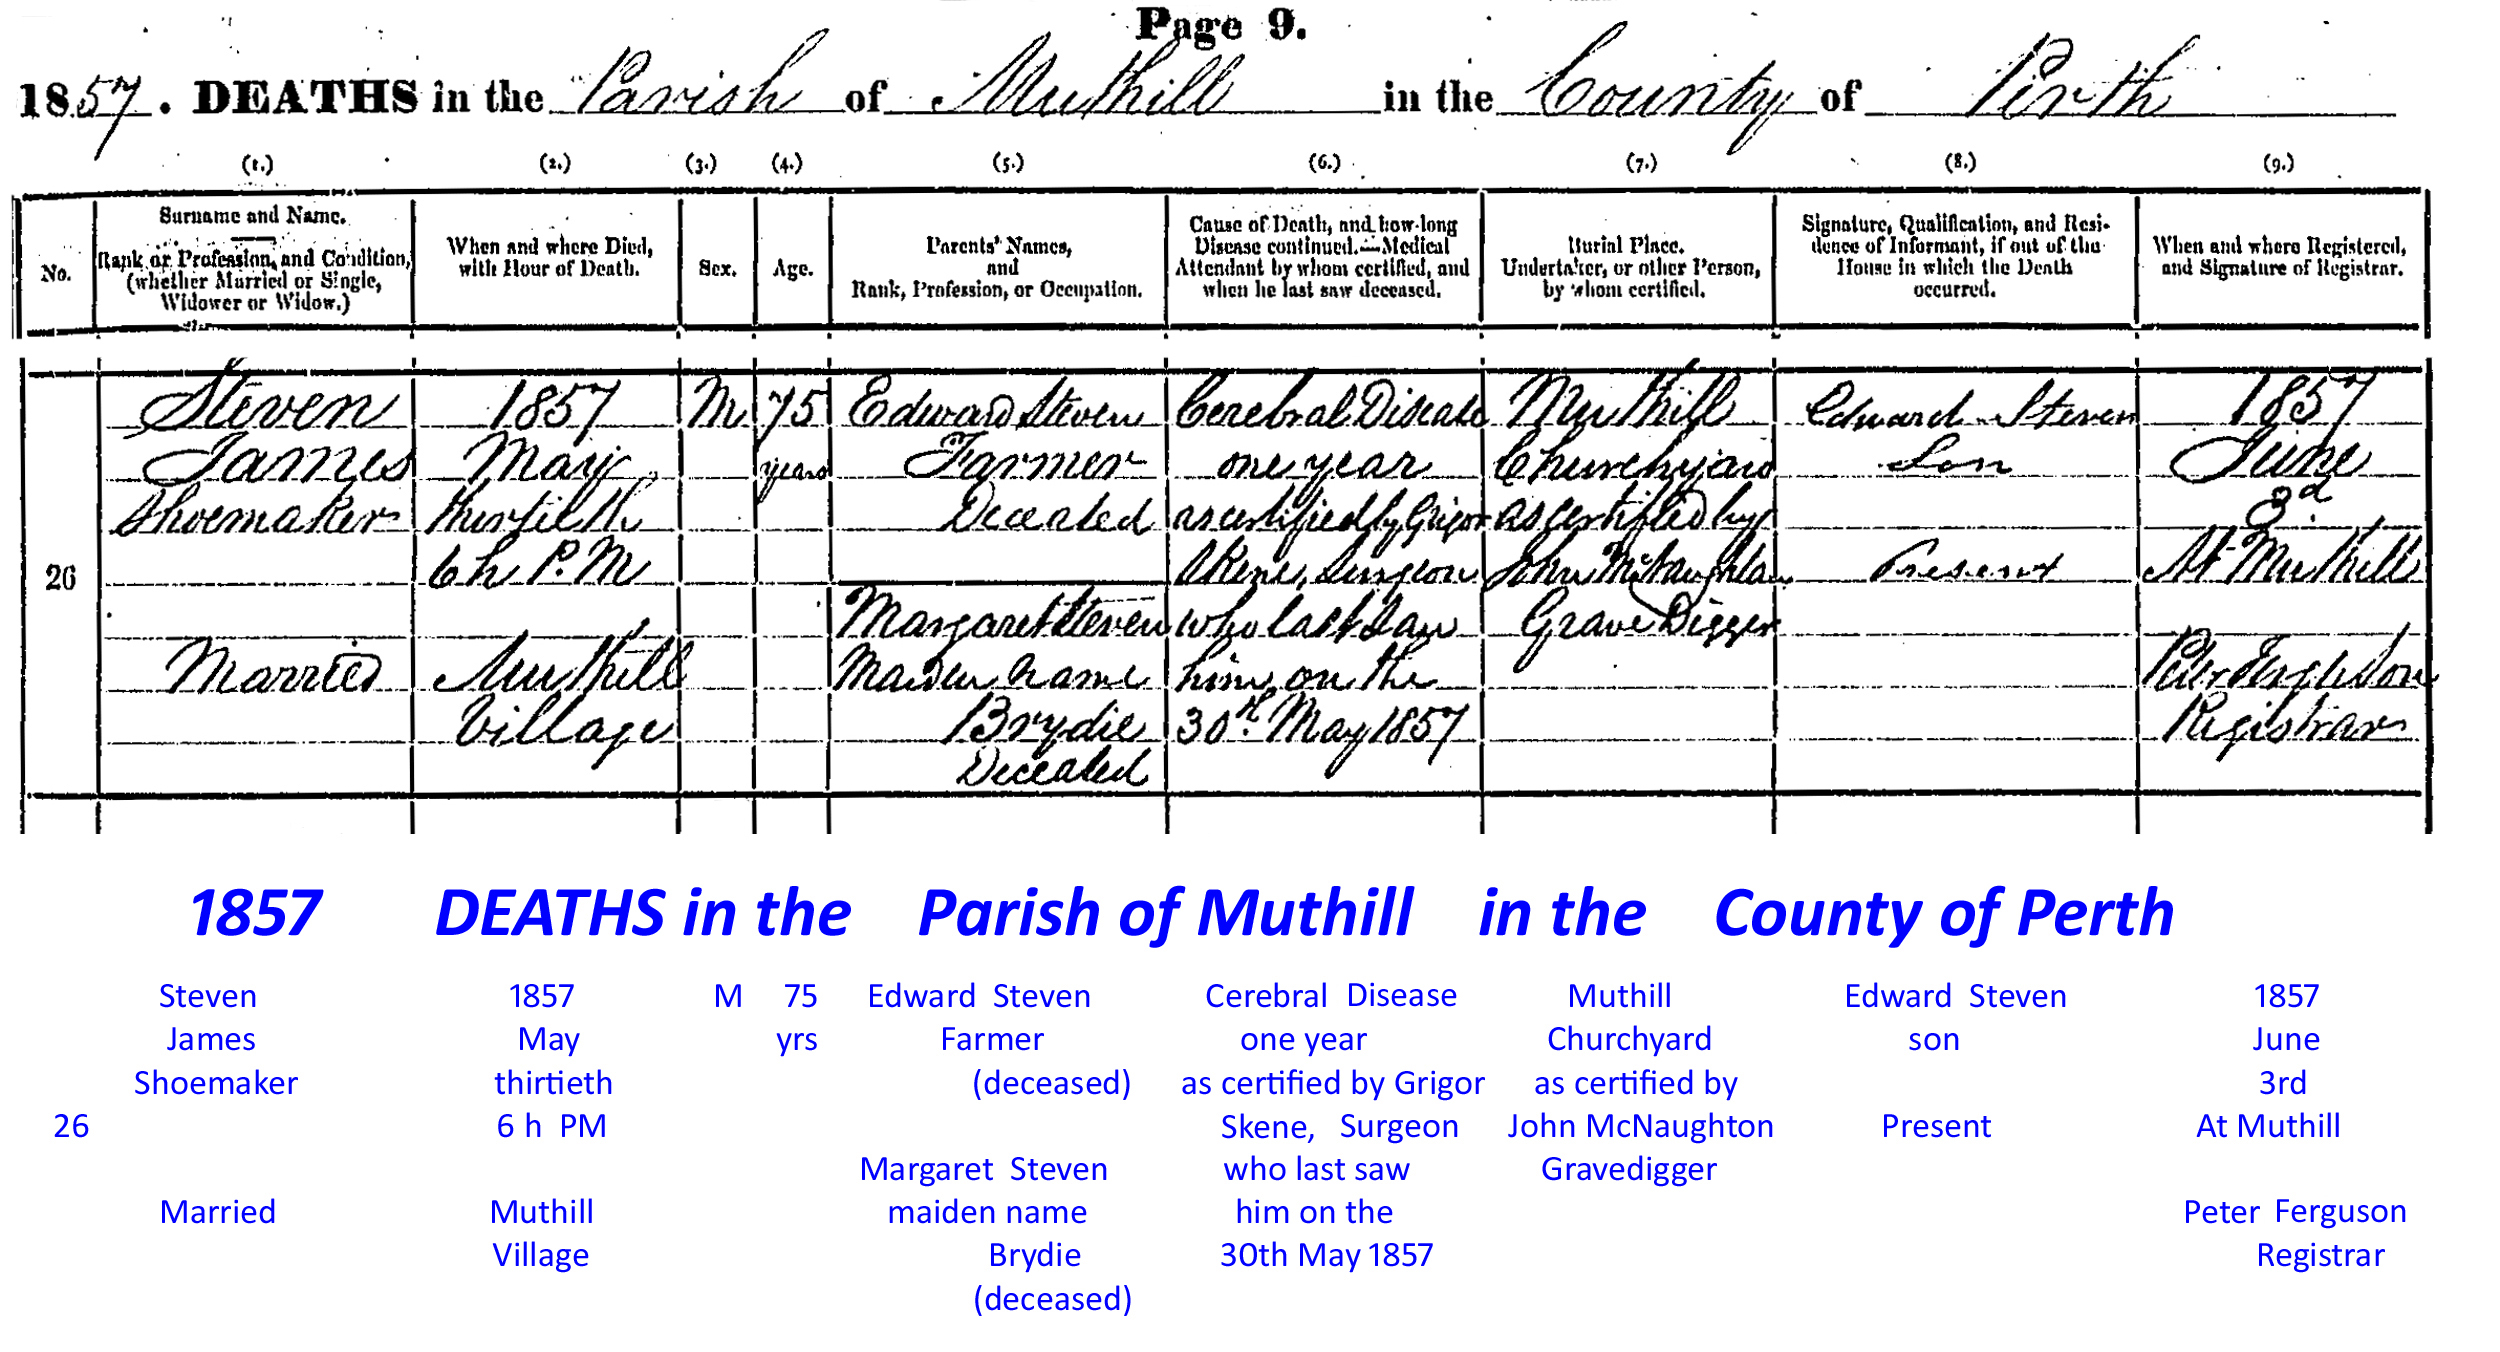 Page 9.
1857. DEATHS in the Parish of Muthill in the County of Perth
(1.) (2.) (3.) (4.) (5.) (6.) (7.) (8.) (9.)
No.
Surname and Name.
Rank or Profession, and Condition,
(whether Married or Single,
Widower or Widow.)
When and where Died,
with Hour of Death.
Sex.
Age.
Parents' Names,
and
Rank, Profession, or Occupation.
Cause of Death, and how long
Disease continued.—Medical
Attendant by whom certified, and
when he last saw deceased.
Burial Place.
Undertaker, or other Person,
by whom certified.
Signature, Qualification, and Resi-
dence of Informant, if out of the
House in which the Death
occurred.
When and where Registered,
and Signature of Registrar.
26
Steven
James
Shoemaker
Married
1857
May
thirtieth
6 h P.M
Muthill
Village
M
75
years
Edward Steven
Farmer
Deceased
Margaret Steven
Maiden name
Brydie
Deceased
Cerebral Disease
one year
as certified by Grigor
Skene, Surgeon
who last saw
him on the
30th May 1857
Muthill
Churchyard
as certified by
John McNaughton
Grave Digger
Edward Steven
Son
Present
1857
June
3d
At Muthill
Peter Ferguson
Registrar
1857 DEATHS in the Parish of Muthill in the County of Perth
Steven 1857 M 75 Edward Steven Cerebral Disease Muthill Edward Steven 1857
James May yrs Farmer one year Churchyard son June
Shoemaker thirtieth (deceased) as certified by Grigor as certified by 3rd
26 6 h PM Skene, Surgeon John McNaughton Present At Muthill
Margaret Steven who last saw Gravedigger
Married Muthill maiden name him on the Peter Ferguson
Village Brydie 30th May 1857 Registrar
(deceased)